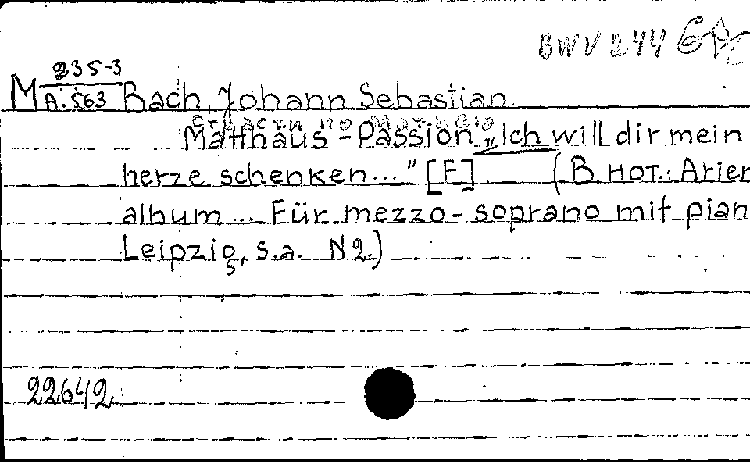 BWV 244
M 235-3 Bach, Johann Sebastian.
A.563
Matthäus-Passion. „Ich will dir mein
herze schenken..." [F] (В нот.: Arien
album... Für mezzo-soprano mit pian
Leipzig, s.a. N2.)
22642